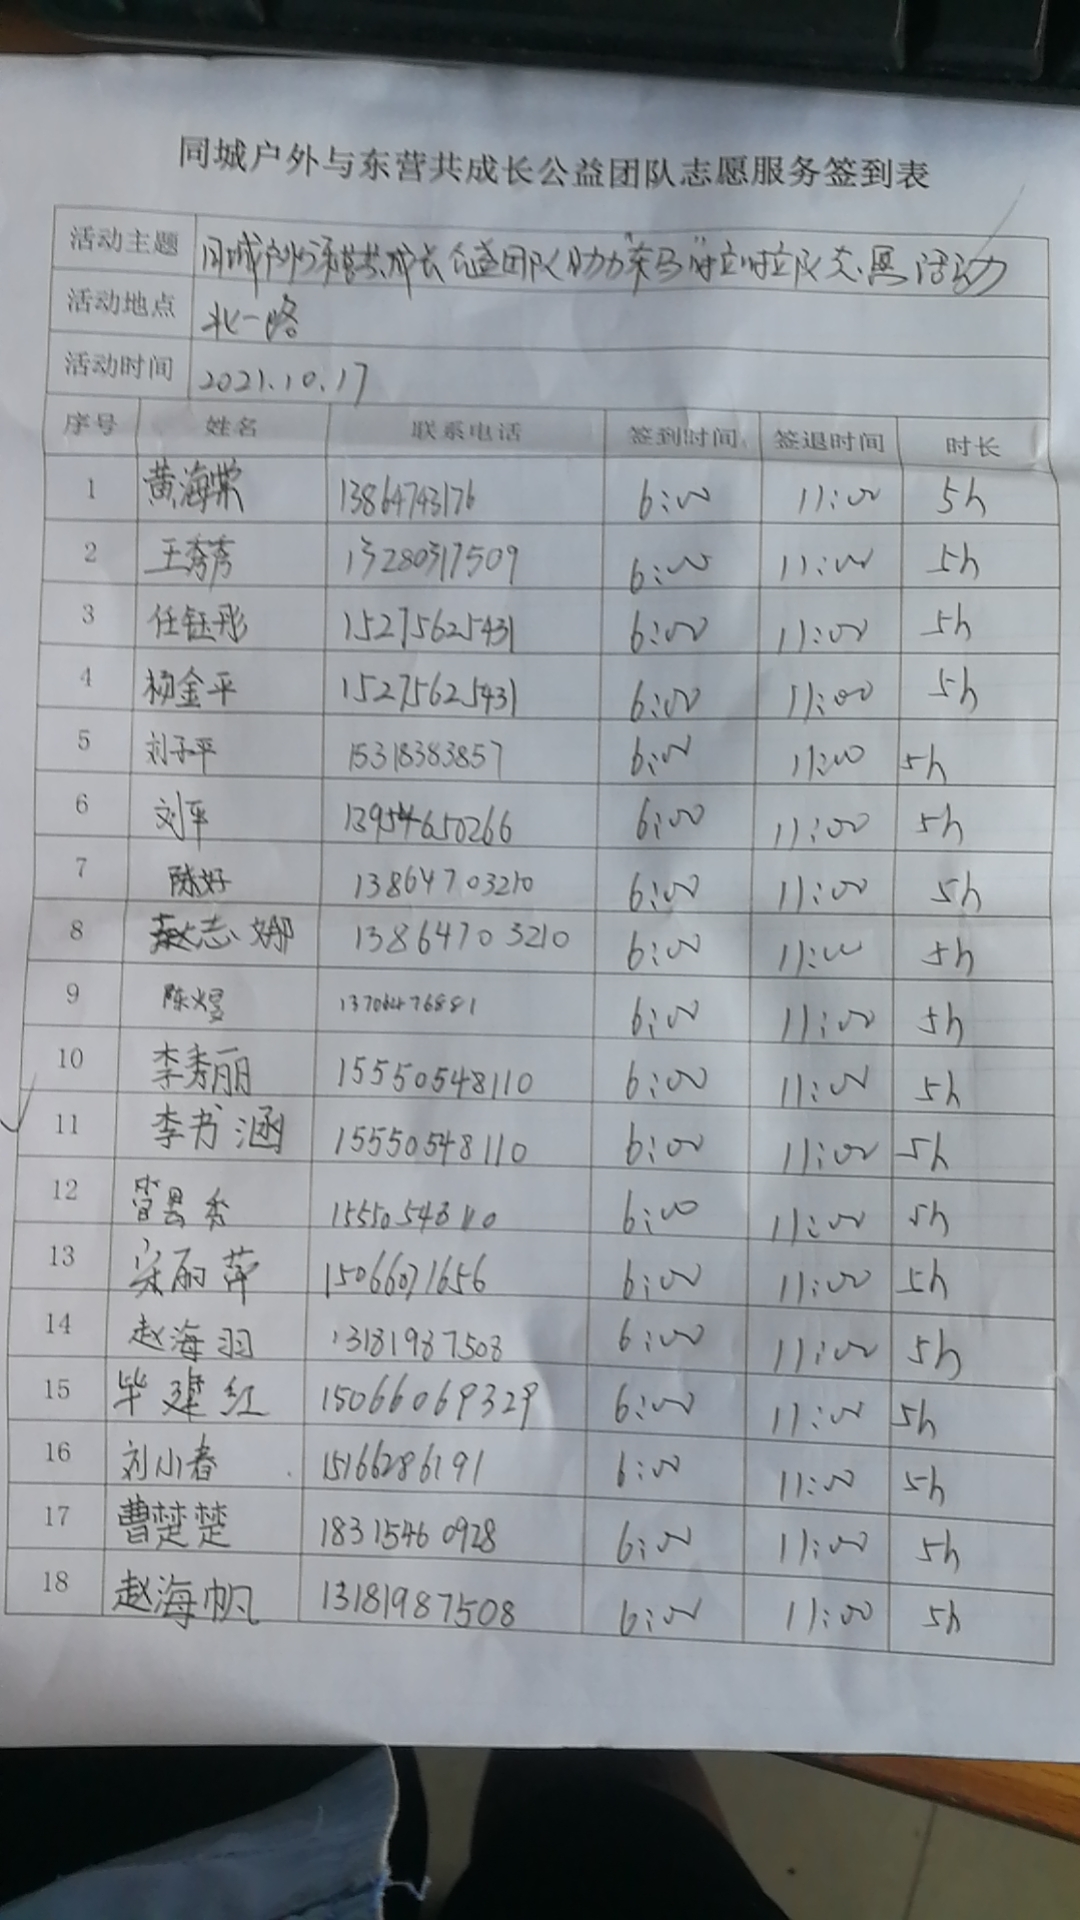 同城户外与东营共成长公益团队志愿服务签到表
活动主题 同城户外与东营共成长公益团队助力"东马"啦啦队志愿活动
活动地点 北一路
活动时间 2021.10.17
序号 姓名 联系电话 签到时间 签退时间 时长
1 黄海棠 13864743176 6:00 11:00 5h
2 王秀秀 13280317509 6:00 11:00 5h
3 任钰彤 15275625431 6:00 11:00 5h
4 杨金平 15275625431 6:00 11:00 5h
5 刘子平 15318383857 6:00 11:00 5h
6 刘平 13954650266 6:00 11:00 5h
7 陈好 13864703210 6:00 11:00 5h
8 赵志娜 13864703210 6:00 11:00 5h
9 陈煜 13706476881 6:00 11:00 5h
10 李秀丽 15550548110 6:00 11:00 5h
11 李书涵 15550548110 6:00 11:00 5h
12 秀 15550548110 6:00 11:00 5h
13 宋丽萍 15066071656 6:00 11:00 5h
14 赵海羽 13181987508 6:00 11:00 5h
15 毕建红 15066069329 6:00 11:00 5h
16 刘小春 15166286191 6:00 11:00 5h
17 曹楚楚 18315460928 6:00 11:00 5h
18 赵海帆 13181987508 6:00 11:00 5h